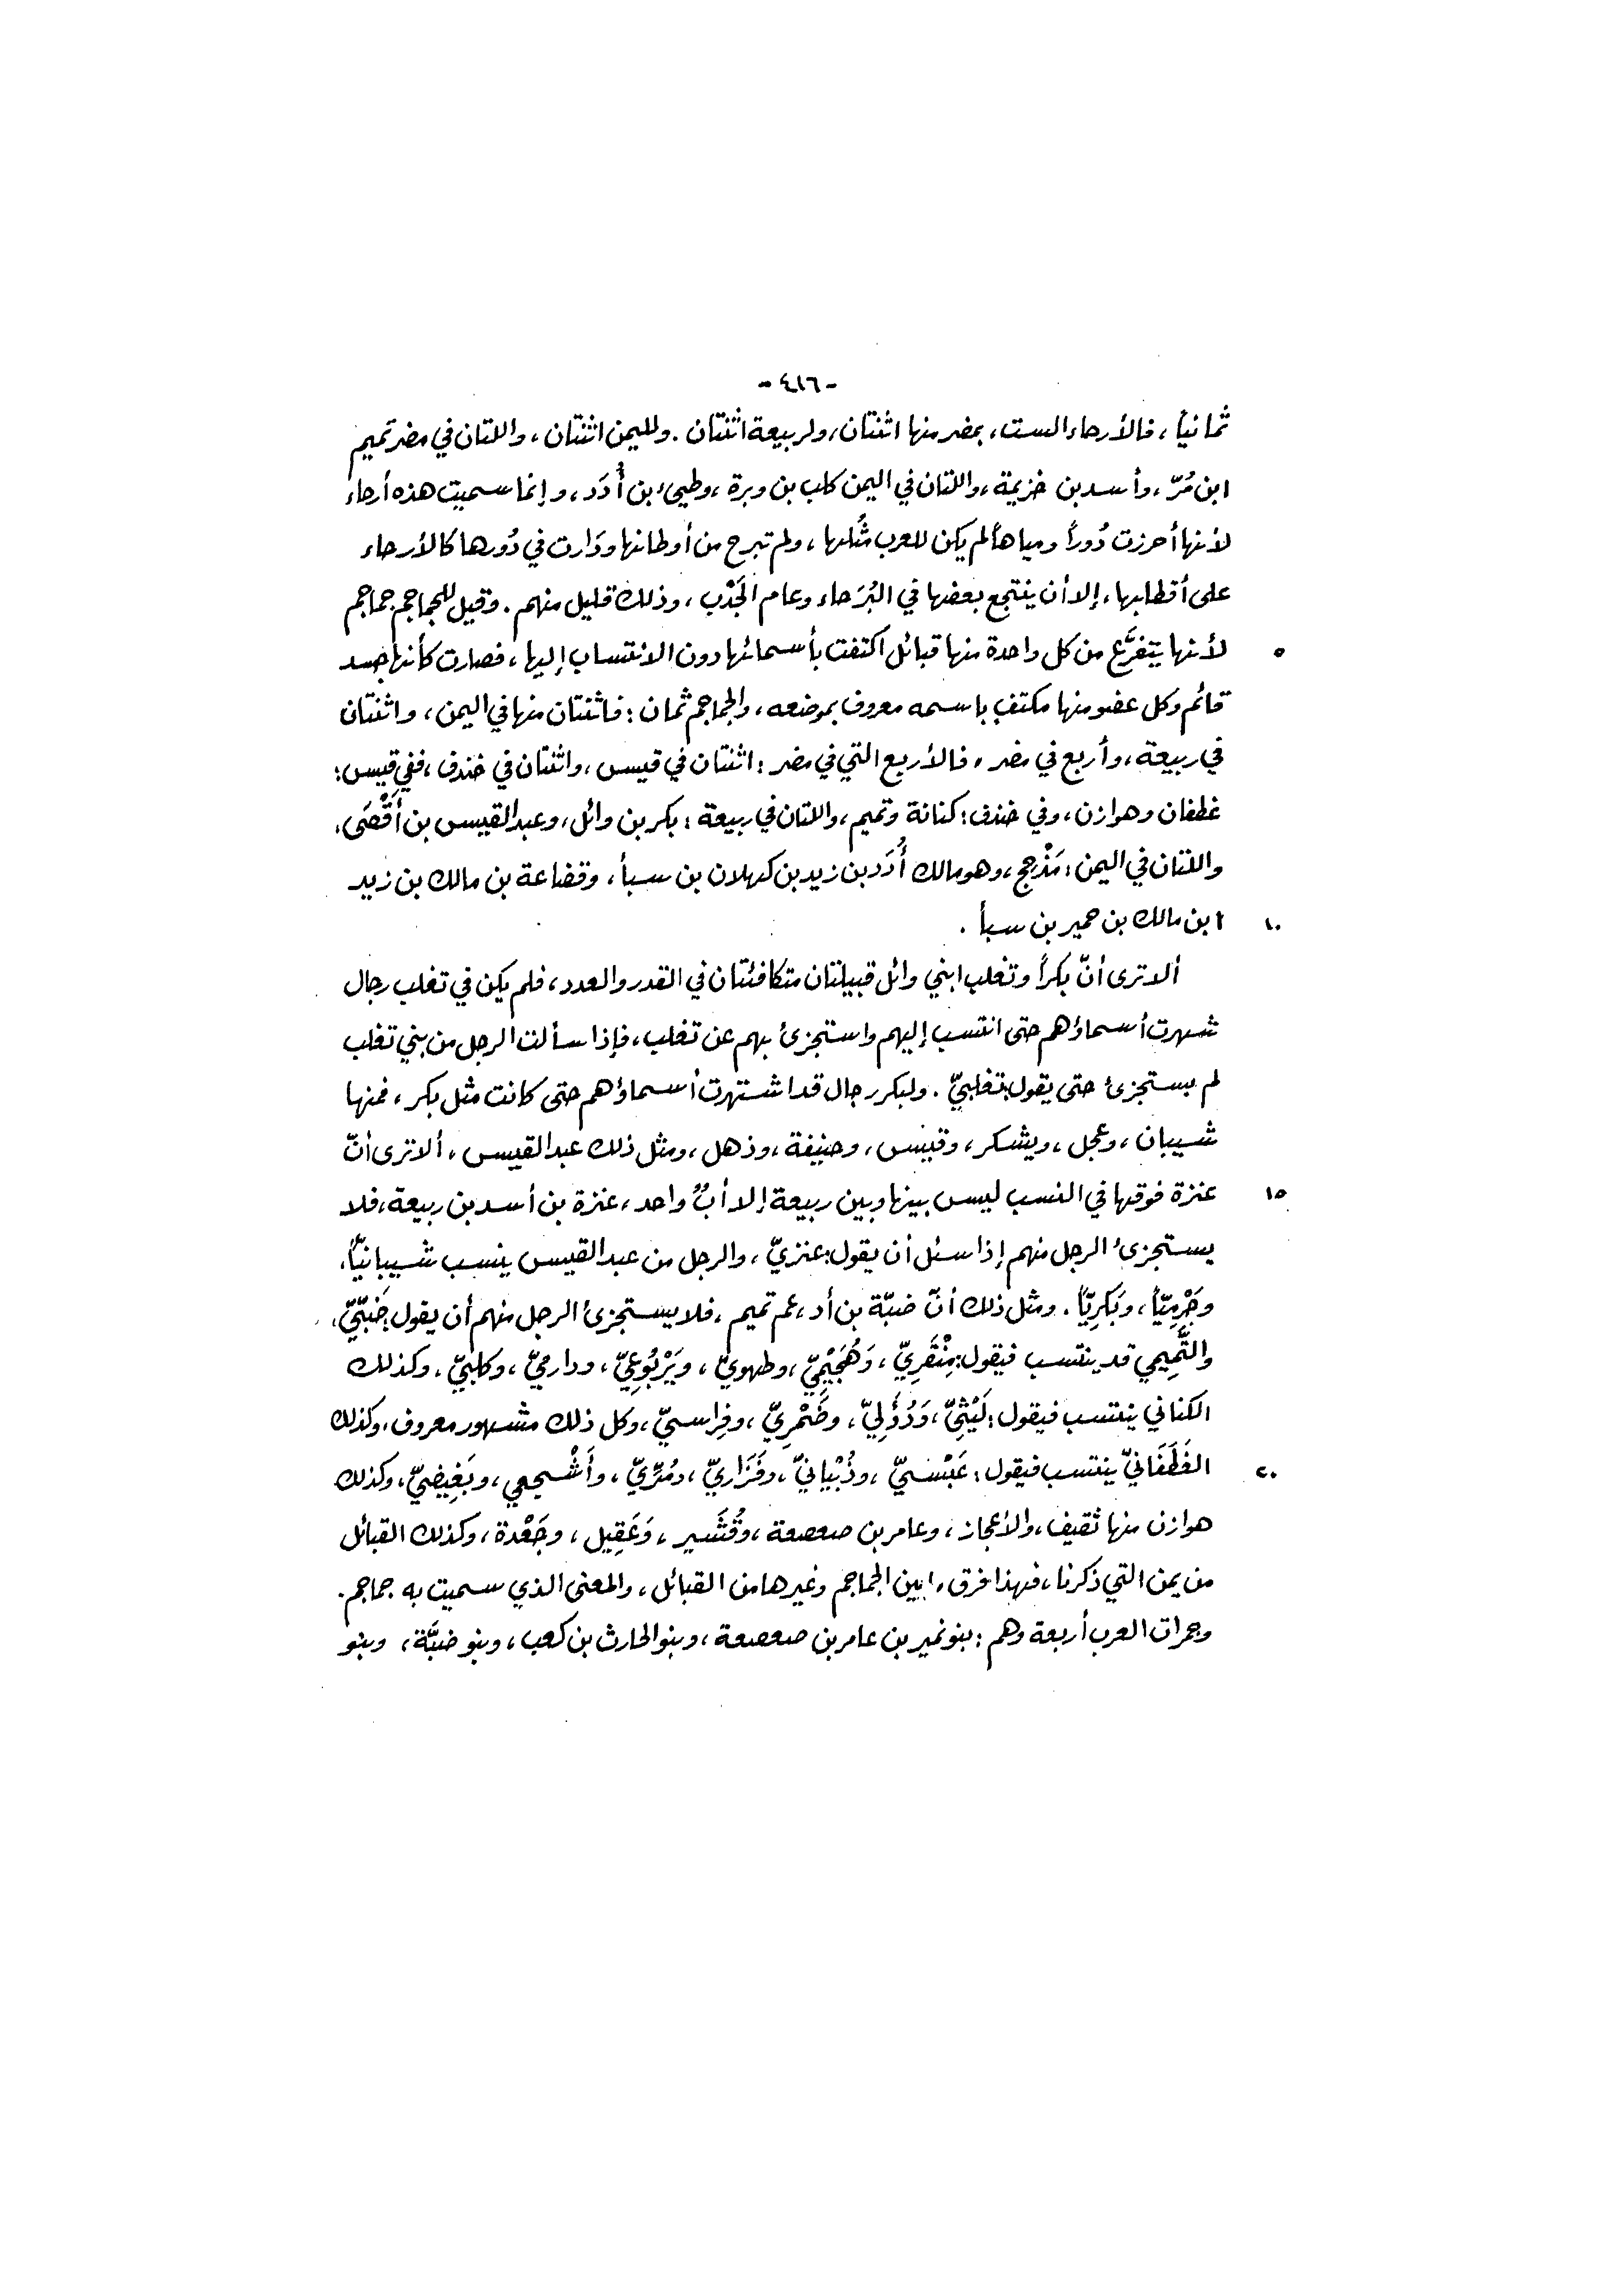 -٤١٦-
ثمانياً، فالأرحاء الست، بمضر منها اثنتان، ولربيعة اثنتان. ولليمن اثنتان، واللتان في مضر تميم
ابن مُرّ، وأسد بن خزيمة، واللتان في اليمن كلب بن وبرة، وطيئ بن أُدَد، وإنما سميت هذه أرحاء
لأنها أحرزت دُوراً ومياهاً لم يكن للعرب مثلها، ولم تبرح من أوطانها ودَارت في دُورها كالأرحاء
على أقطابها، إلا أن ينتجع بعضها في البُرَحاء وعام الجَدْب، وذلك قليل منهم. وقيل للجماجم جماجم
٥ لأنها يتفرَّع من كل واحدة منها قبائل اكتفت بأسمائها دون الانتساب إليها، فصارت كأنها جسد
قائم وكل عضو منها مكتفٍ باسمه معروف بموضعه، والجماجم ثمان: فاثنتان منها في اليمن، واثنتان
في ربيعة، وأربع في مضر، فالأربع التي في مضر: اثنتان في قيس، واثنتان في خندف، ففي قيس:
غطفان وهوازن، وفي خندف: كنانة وتميم، واللتان في ربيعة: بكر بن وائل، وعبد القيس بن أَفْصَى،
واللتان في اليمن: مَذْحِج، وهو مالك أُدَد بن زيد بن كهلان بن سبأ، وقضاعة بن مالك بن زيد
١٠ ابن مالك بن حمير بن سبأ.
ألا ترى أنّ بكراً وتغلب ابني وائل قبيلتان متكافئتان في القدر والعدد، فلم يكن في تغلب رجال
شهرت أسماؤهم حتى انتسب إليهم واستجزئ بهم عن تغلب، فإذا سألت الرجل من بني تغلب
لم يستجزئ حتى يقول: تغلبيّ. ولبكر رجال قد اشتهرت أسماؤهم حتى كانت مثل بكر، فمنها
شيبان، وعجل، ويشكر، وقيس، وحنيفة، وذهل، ومثل ذلك عبد القيس، ألا ترى أنّ
١٥ عنزة فوقها في النسب ليس بينها وبين ربيعة إلا أبٌ واحد، عنزة بن أسد بن ربيعة، فلا
يستجزئ الرجل منهم إذا سئل أن يقول: عنزيّ، والرجل من عبد القيس ينسب شيبانيّاً،
وجَرْمِيّاً، وبَكرِيّاً. ومثل ذلك أنّ ضبّة بن أد، عم تميم، فلا يستجزئ الرجل منهم أن يقول: ضَبّيّ،
والتَّمِيمي قد ينتسب فيقول: مِنْقَرِيّ، وَهُجَيْمِيّ، وطهويّ، ويَرْبُوعِيّ، ودارميّ، وكلبيّ. وكذلك
الكناني ينتسب فيقول: لَيْثِيّ، وَدُؤَلِيّ، وضَمْرِيّ، وفِراسيّ، وكل ذلك مشهور معروف، وكذلك
٢٠ الغَطَفَانيّ ينتسب فيقول: عَبْسيّ، وذُبْيانيّ، وفَزَاريّ، ومُرّيّ، وأَشْجعي، وبَغِيضيّ، وكذلك
هوازن منها ثقيف، والأعجاز، وعامر بن صعصعة، وقُشَير، وَعَقِيل، وجَعْدة، وكذلك القبائل
من يمن التي ذكرنا، فهذا فرق ما بين الجماجم وغيرها من القبائل، والمعنى الذي سميت به جماجم.
وجمرات العرب أربعة وهم: بنو نمير بن عامر بن صعصعة، وبنو الحارث بن كعب، وبنو ضبَّة، وبنو